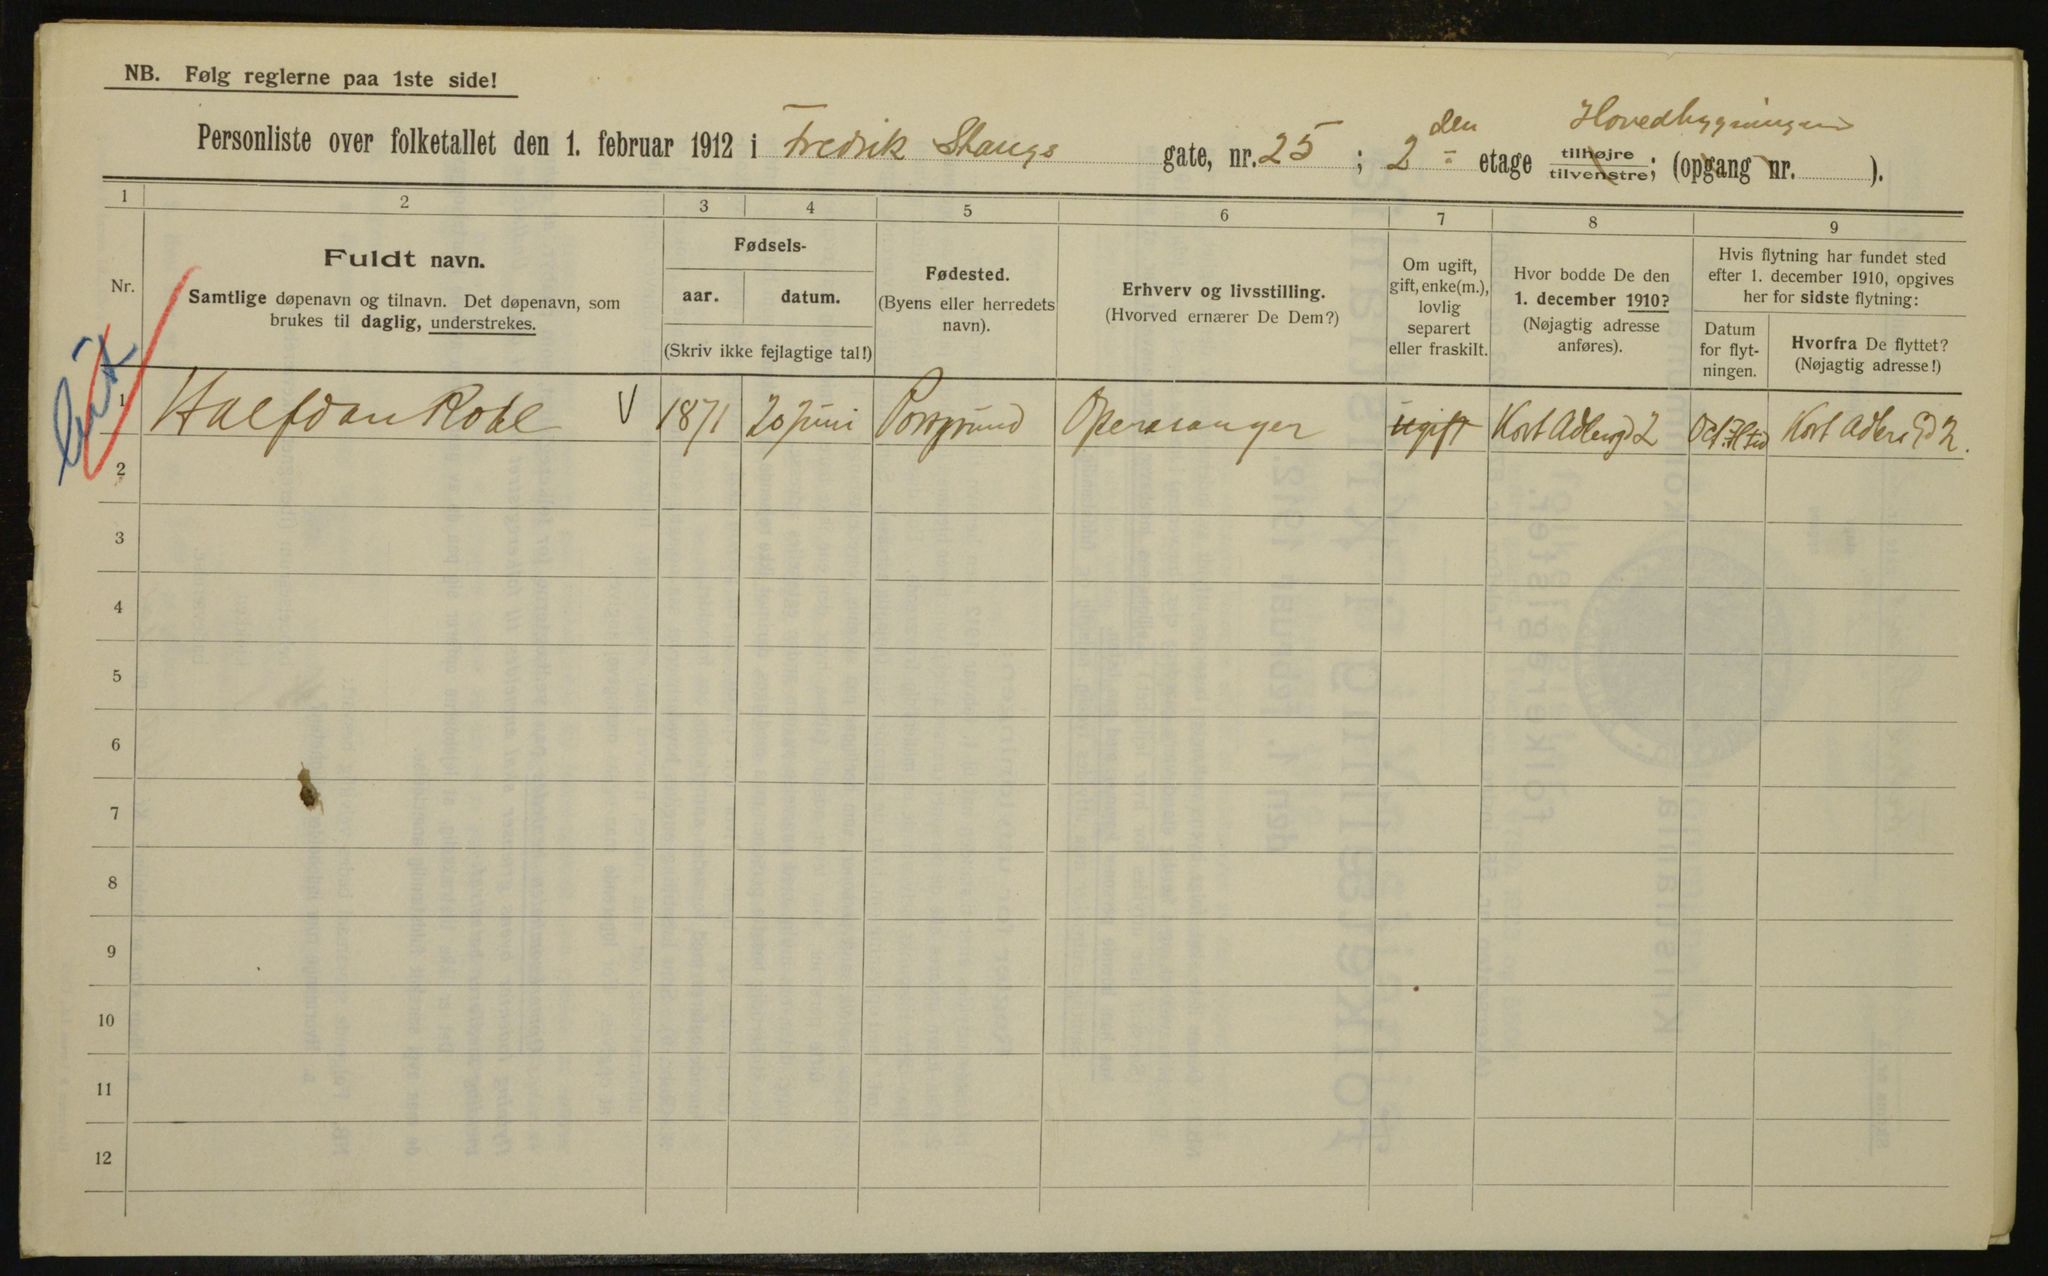 NB. Følg reglerne paa 1ste side!
Hovedbygningen
Personliste over folketallet den 1. februar 1912 i Fredrik Stangs gate, nr. 25 ; 2 den etage tilhøjre tilvenstre; (opgang nr. ).
1 2 3 4 5 6 7 8 9
Nr.
Fuldt navn.
Samtlige døpenavn og tilnavn. Det døpenavn, som
brukes til daglig, understrekes.
Fødsels-
aar. datum.
(Skriv ikke fejlagtige tal!)
Fødested.
(Byens eller herredets
navn).
Erhverv og livsstilling.
(Hvorved ernærer De Dem?)
Om ugift,
gift, enke(m.),
lovlig
separert
eller fraskilt.
Hvor bodde De den
1. december 1910?
(Nøjagtig adresse
anføres).
Hvis flytning har fundet sted
efter 1. december 1910, opgives
her for sidste flytning:
Datum
for flyt-
ningen.
Hvorfra De flyttet?
(Nøjagtig adresse!)
1 Halfdan Rode V 1871 20 Juni Porsgrund Operasanger ugift Kort Adlersgd 2 Kort Adlersgd 2.
2
3
4
5
6
7
8
9
10
11
12